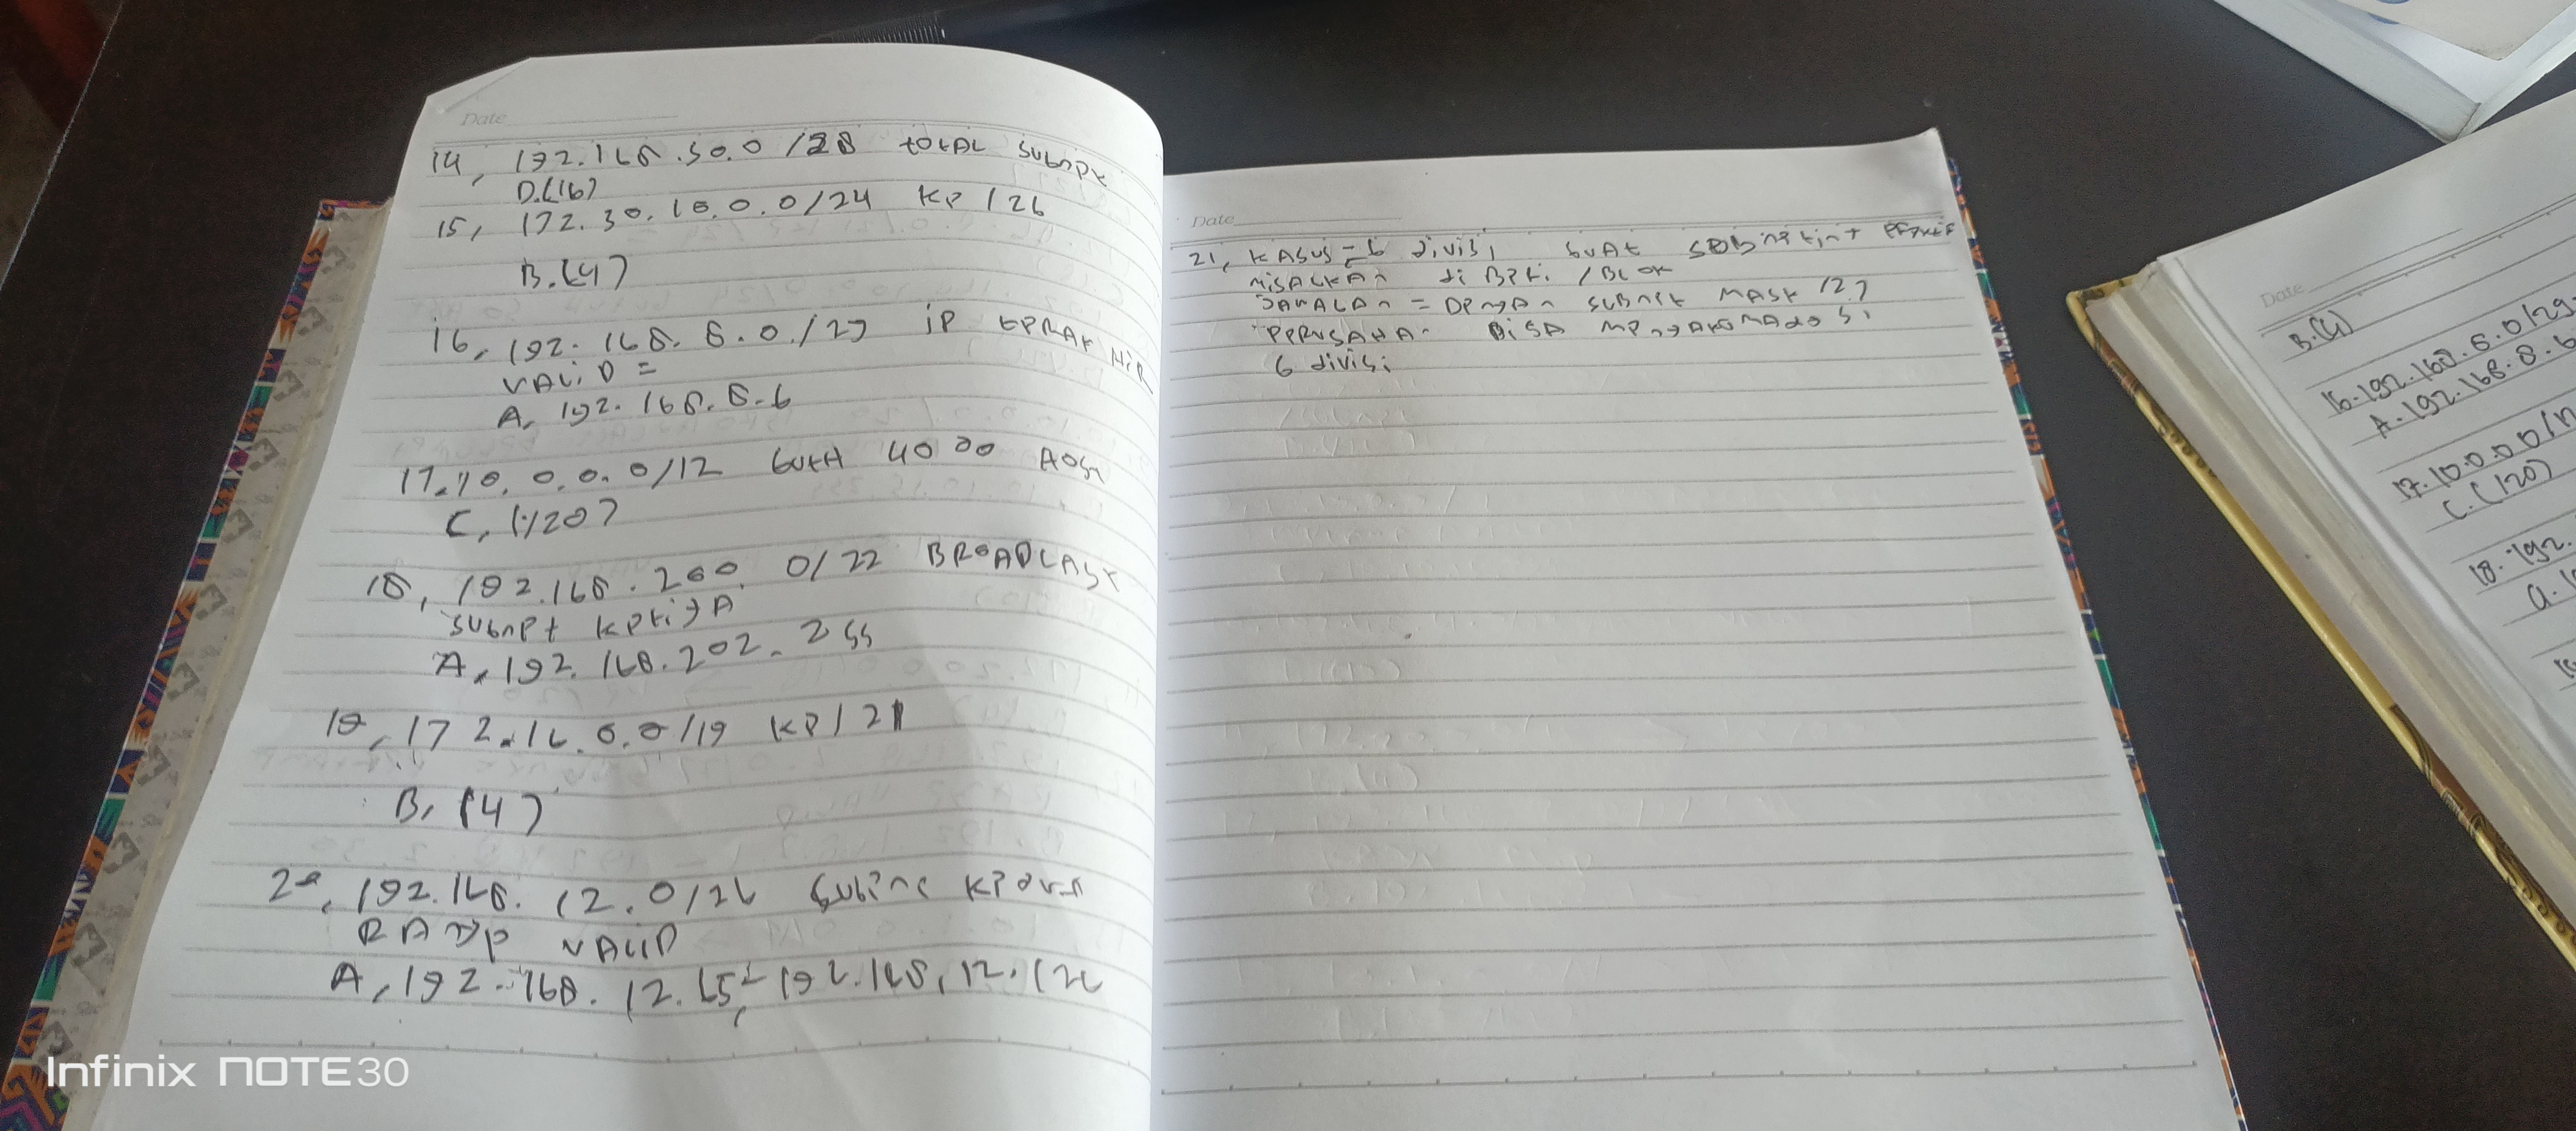 Date
14, 192.168.50.0 /28 total subnet
D.(16)
15, 172.30.10.0.0/24 ke /26
B.(4)
16, 192.168.8.0./29 ip terakhir
valid =
A, 192.168.8.6
17. 10.0.0.0/12 butuh 4000 host
C, (/20)
18, 192.168.200.0/22 Broadcast
subnet ketiga
A, 192.168.202.255
19, 172.16.0.0/19 ke /21
B, (4)
20, 192.168.12.0/26 subnet kedua
range valid
A, 192.168.12.65 - 192.168.12.126
Date
21, kasus = 6 divisi buat
misalkan di beri /Blok
Jawaban = Dengan subnet mask /27
perusahaan bisa mengakomodasi
6 divisi
Date
B.(4)
16. 192.168.8.0/29
A. 192.168.8.6
17. 10.0.0.0/1
C. (120)
18. 192.
a. 1
Infinix NOTE 30